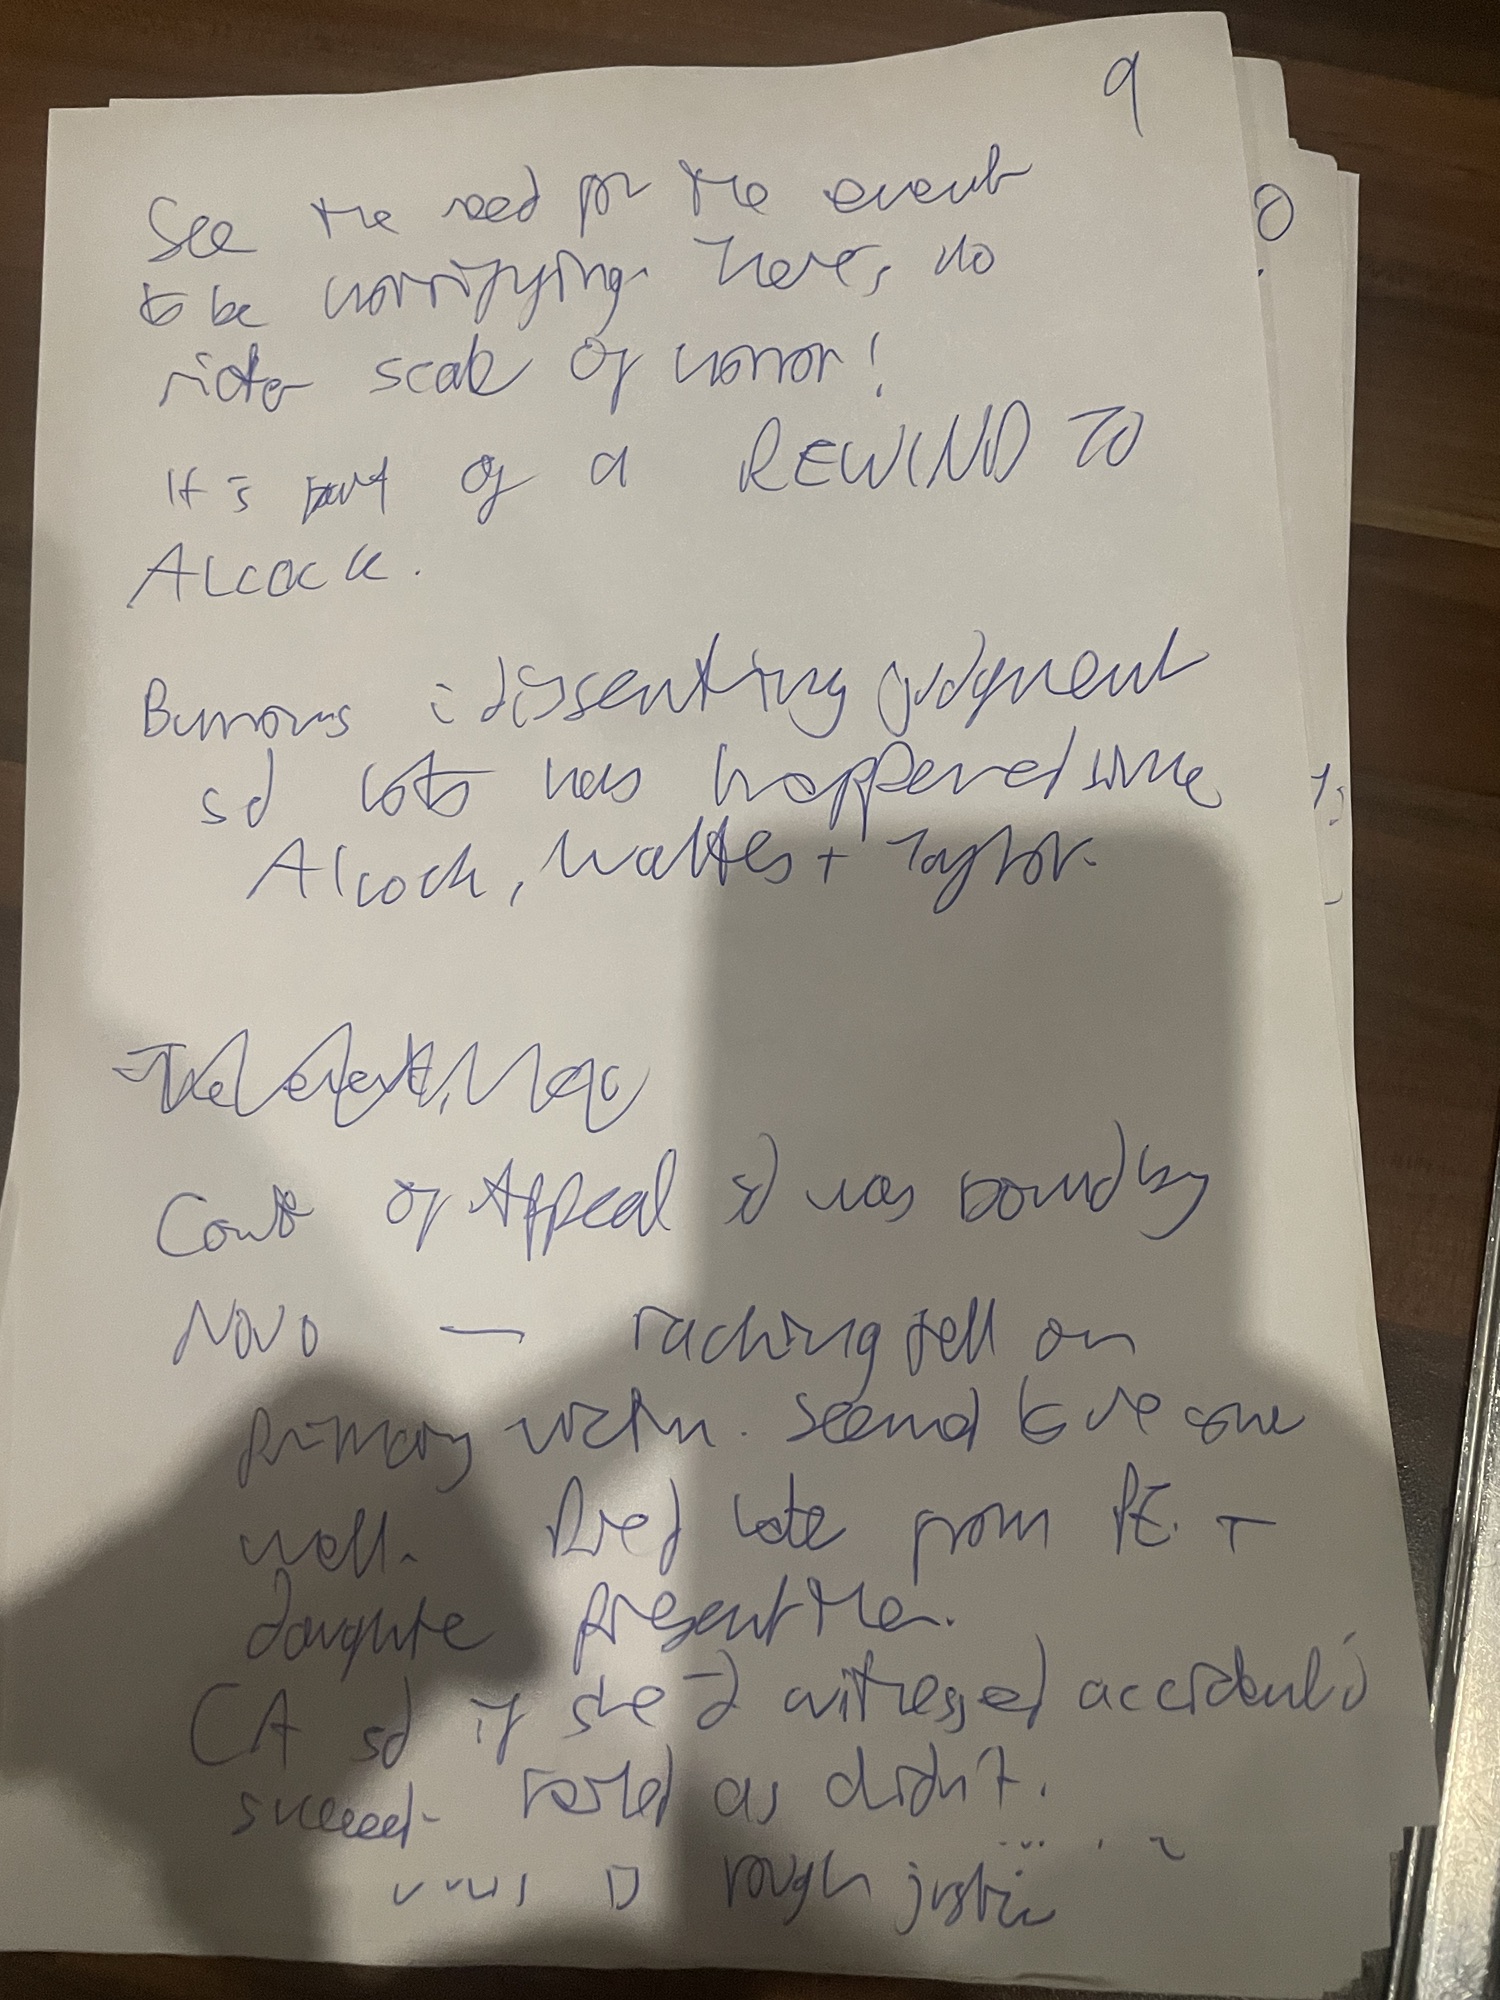 9
See the need for the event
to be horrifying. Here, no
richter scale of horror!
It's part of a REWIND TO
Alcock.
Burrows : dissenting judgment
sd lots has happened since
Alcock, Walters + Taylor.
Court of Appeal sd was bound by
Novo — racking fell on
primary victim. Seemed to be one
well. Died late from PE. +
daughter present then.
CA sd if she'd witnessed accident
succeed. Failed as didn't.
rough justice
0